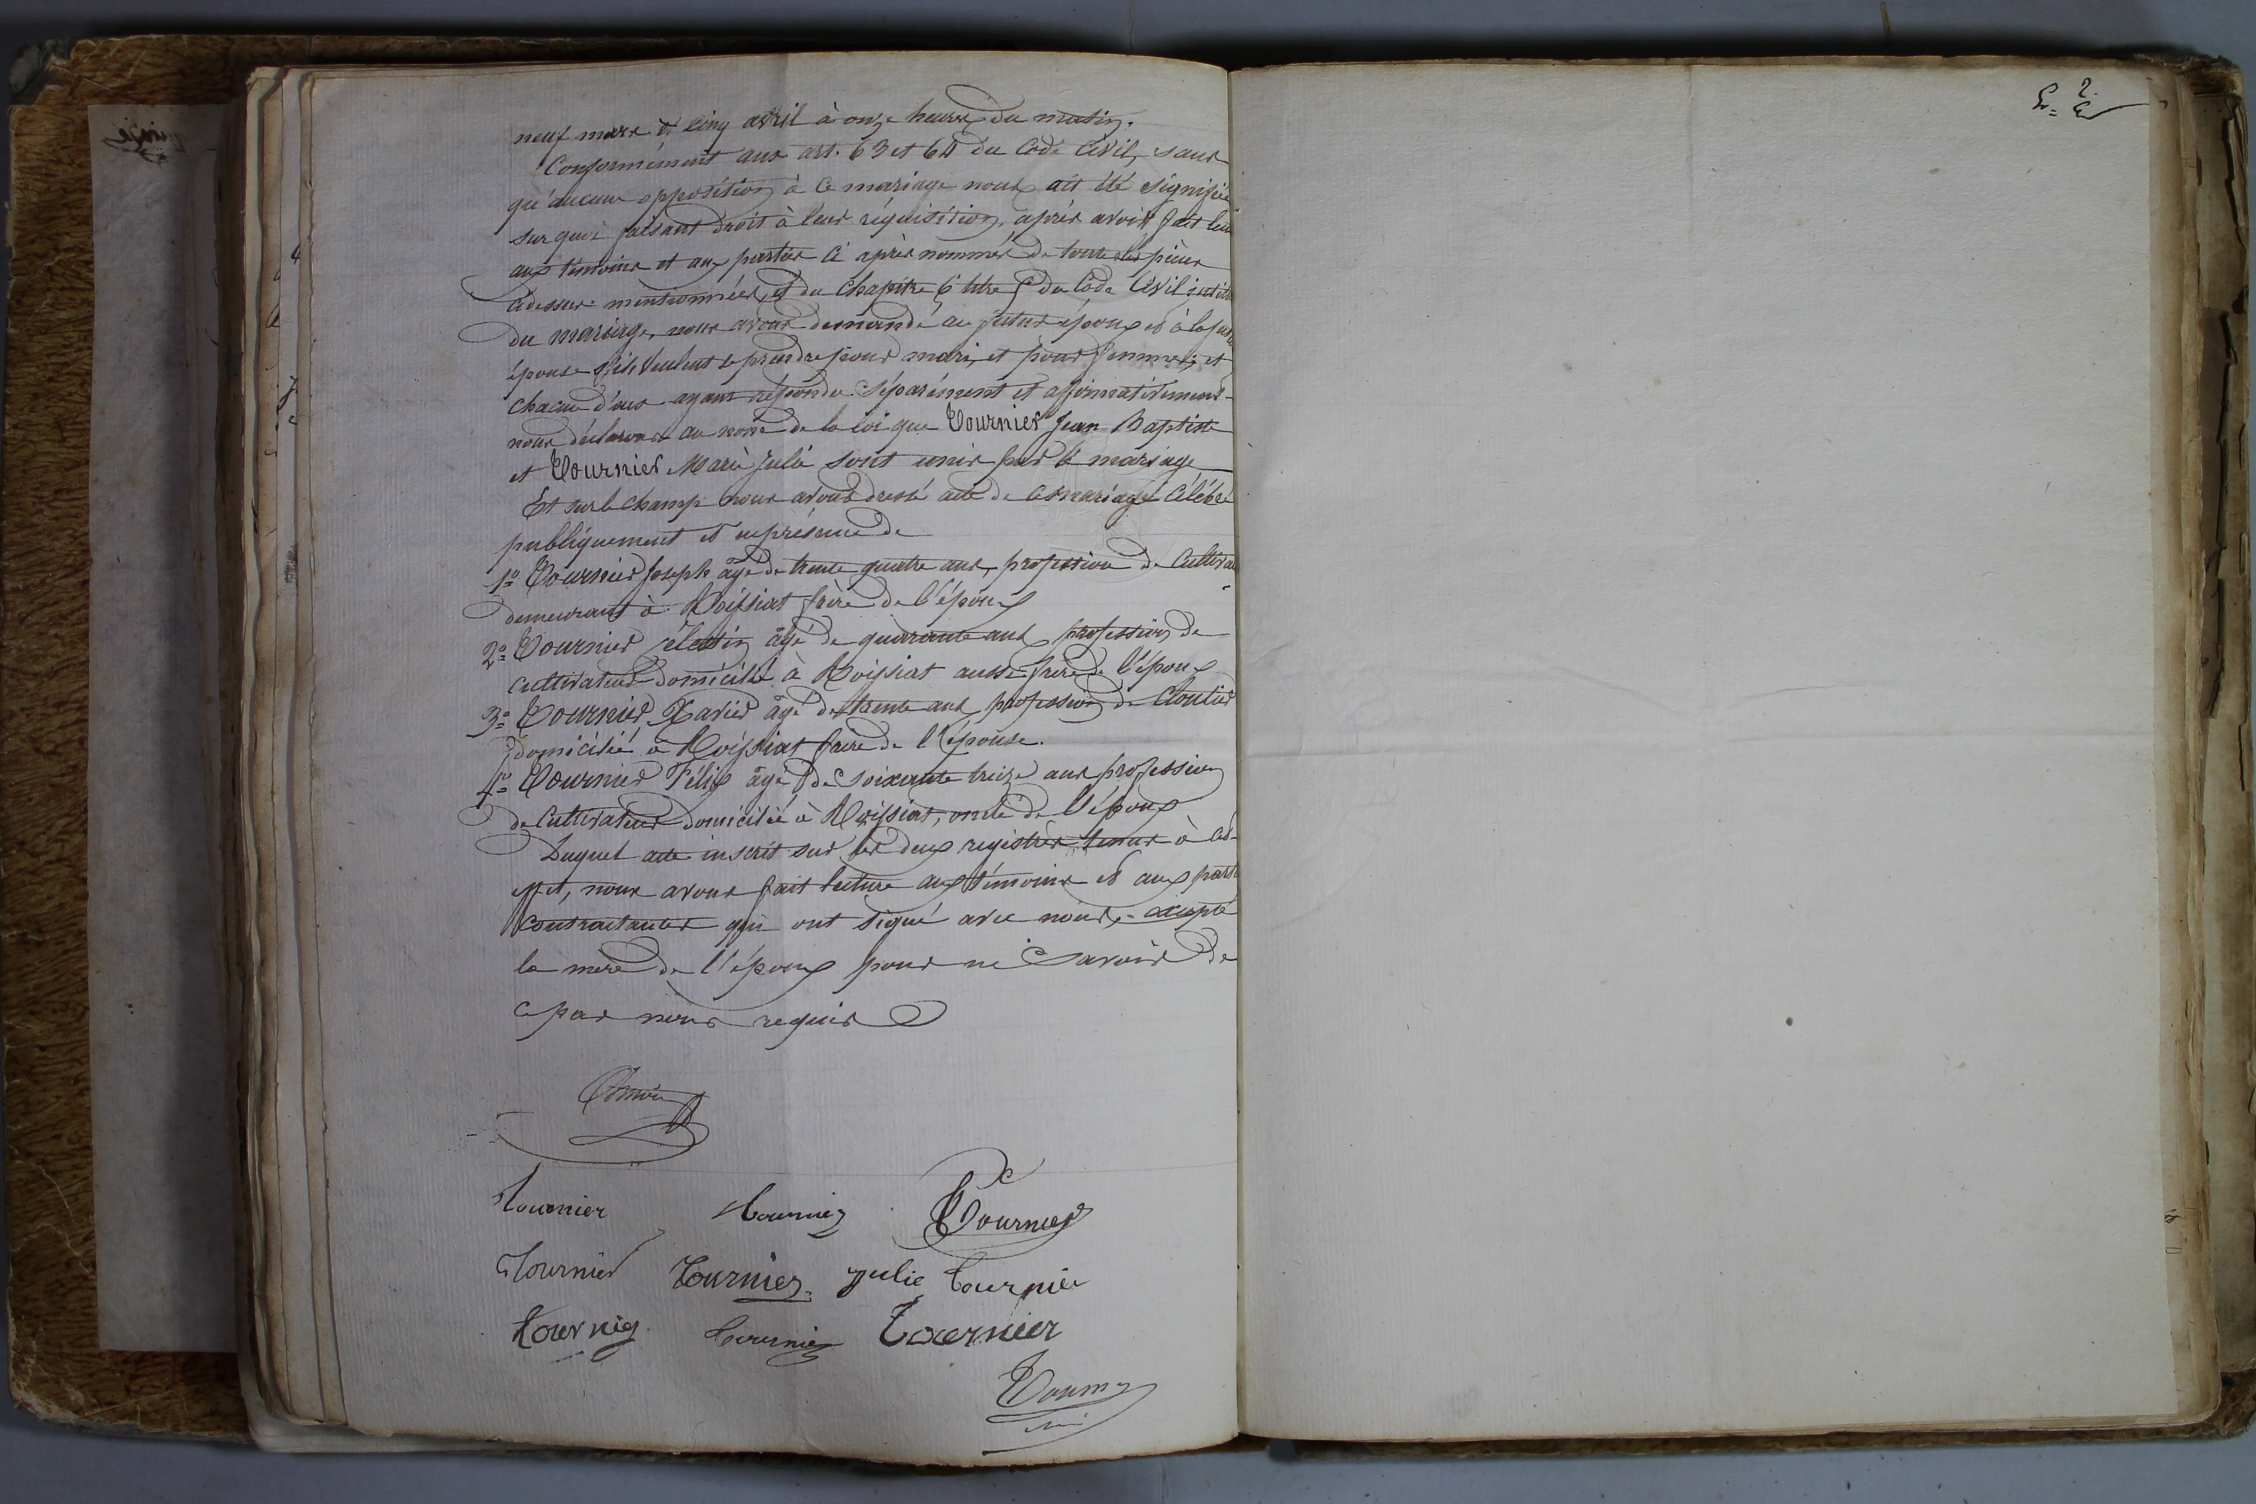 neuf mars et cinq avril à onze heures du matin.
Conformément aux art. 63 et 64 du Code Civil, sans
qu'aucune opposition à ce mariage nous ait été signifiée
sur quoi faisant droit à leur réquisition, après avoir fait lect
aux témoins et aux parties ci après nommés de toutes les pièces
cidessus mentionnées, et du chapitre 6 titre 5 du Code Civil intitu
du mariage, nous avons demandé au futur époux et à la futu
épouse s'ils veulent se prendre pour mari et pour femme, et
chacun d'eux ayant répondu séparément et affirmativement
nous déclarons au nom de la loi que Tournier Jean Baptiste
et Tournier Marie Julie sont unis par le mariage
Et sur le champ nous avons dressé acte de ce mariage célébré
publiquement et en présence de
1º Tournier Joseph âgé de trente quatre ans, profession de Cultivat
demeurant à Moissiat frère de l'époux
2º Tournier Célestin âgé de quarante ans profession de
cultivateur domicilié à Moissiat aussi frère de l'époux
3º Tournier Xavier âgé de trente ans profession de Cloutier
domicilié à Moissiat frère de l'épouse.
4º Tournier Félix âgé de soixante treize ans profession
de Cultivateur domicilié à Moissiat, oncle de l'époux
Duquel acte inscrit sur les deux registres tenus à cet
effet, nous avons fait lecture aux témoins et aux parti
contractantes qui ont signé avec nous, excepté
la mère de l'époux pour ne savoir de
ce par nous requis
Tournier Tournier Tournier
Tournier Tournier Julie Tournier
Tournier Tournier Tournier